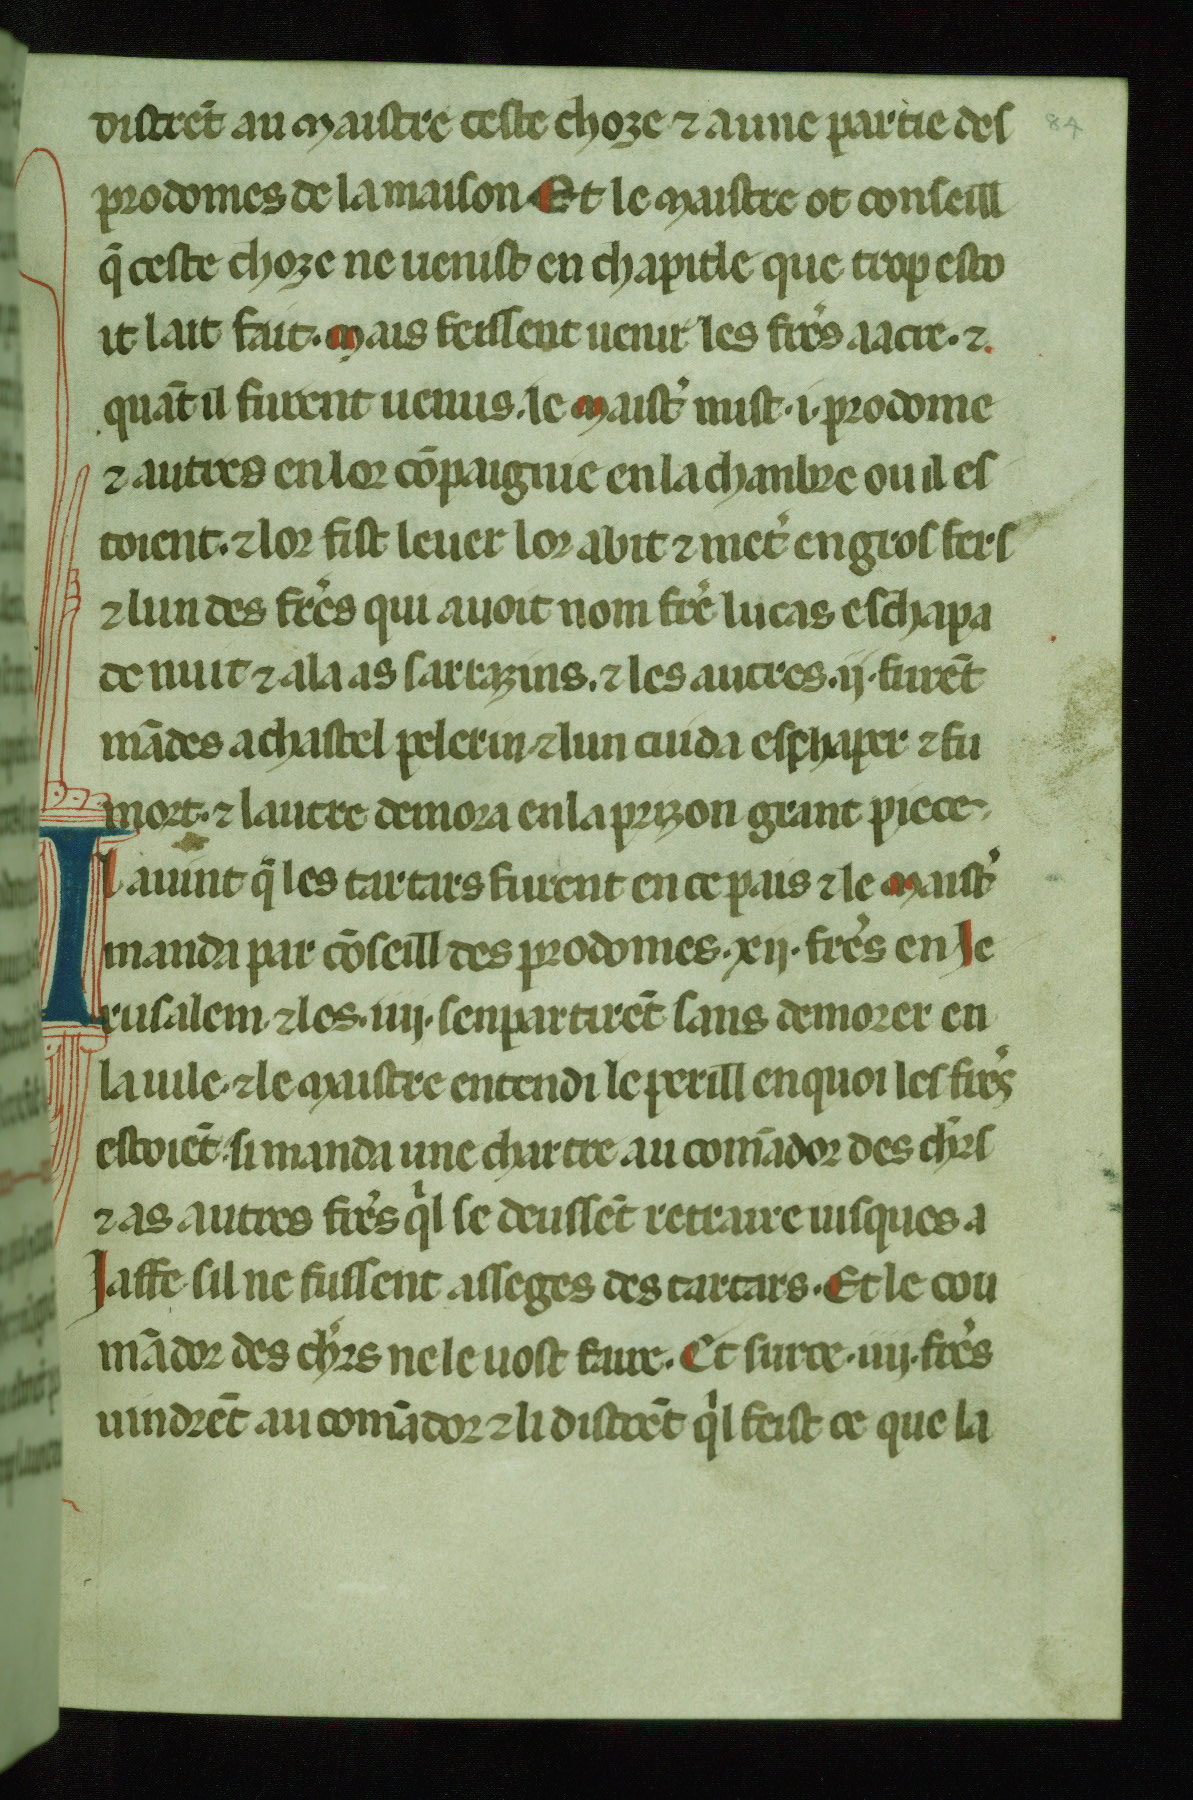 distrēt au Maistre ceste choze ⁊ a une partie des
84
prodomes de la maison. Et le Maistre ot conseill
q̄ ceste choze ne uenist en chapitle que trop esto
it lait fait. Mais feissent uenir les frēs a acre. ⁊
quāt il furent uenus. le Maist̄ mist .i. prodome
⁊ autres en lor cōpaignie en la chambre ou il es
toient. ⁊ lor fist leuer lor abit ⁊ met̄ en gros fers
⁊ lun des frēs qui auoit nom frē lucas eschapa
de nuit ⁊ ala as sarrazins. ⁊ les autres .ij. furēt
mādes a chastel pelerin. ⁊ lun cuida eschaper ⁊ fu
mort. ⁊ lautre demora en la prizon grant piece.
Il auint q̄ les tartars furent en ce pais ⁊ le Maist̄
manda par cōseill des prodomes .xij. frēs en Je
rusalem. ⁊ les .iiij. sen partirēt sans demorer en
la uile. ⁊ le Maistre entendi le perill en quoi les frēs
estoiēt. si manda une chartre au comādor des ch̄rs
⁊ as autres frēs qͥl se deussēt retraire iusques a
Jaffe. sil ne fussent asseges des tartars. Et le cou
mādor des ch̄rs ne le uost faire. Et sur ce .iiij. frēs
uindrēt au comādor ⁊ li distrēt qͥl feist ce que la